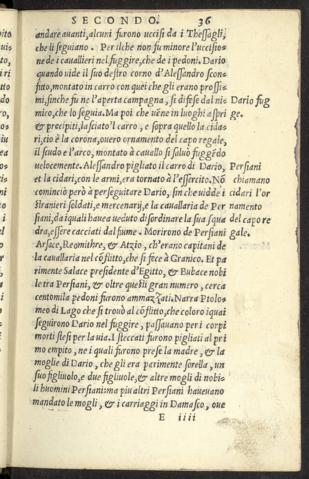 SECONDO. 36
andare auanti, alcuni furono uccisi da i Thessagli,
che li seguiano. Per ilche non fu minore l'uccisio=
ne de i cauallieri nel fuggire, che de i pedoni. Dario
quando uide il suo destro corno d'Alessandro scon=
fitto, montato in carro con quei che gli erano prossi=
mi, finche fu ne l'aperta campagna, si difese dal ni=
mico, che lo seguia. Ma poi che uẽne in luoghi aspri
& precipiti, lasciato l carro, e sopra quello la cida=
ri, cio è la corona, ouero ornamento del capo regale,
il scudo e l'arco, montato à cauallo si saluò fuggẽdo
uelocemente. Alessandro pigliato il carro di Dario,
et la cidari, con le armi, era tornato à l'essercito. Nõ
cominciò però à perseguitare Dario, fin che uidde i
stranieri soldati, e mercenarij, e la cauallaria de Per
siani, da iquali haueа ueduto disordinare la sua squa
dra, essere cacciati dal fiume. Morirono de Persiani
Arsace, Reomithre, & Atzio, ch'erano capitani de
la cauallaria nel cõflitto, che si fece à Granico. Et pa
rimente Salace presidente d'Egitto, & Eubace nobi
le tra Persiani, & oltre questi gran numero, cerca
centomila pedoni furono ammazzati. Narra Ptolo=
meo di Lago che si trouò al cõflitto, che coloro iquai
seguirono Dario nel fuggire, passauano per i corpi
morti stesi per la uia. I steccati furono pigliati al pri
mo empito, ne i quali furono prese la madre, & la
moglie di Dario, che gli era parimente sorella, un
suo figliuolo, e due figliuole, & altre mogli di nobi=
li huomini Persiani: ma piu altri Persiani haueuano
mandato le mogli, & i carriaggi in Damasco, oue
E iiii
Dario fug
ge.
Persiani
chiamano
cidari l'or
namento
del capo re
gale.